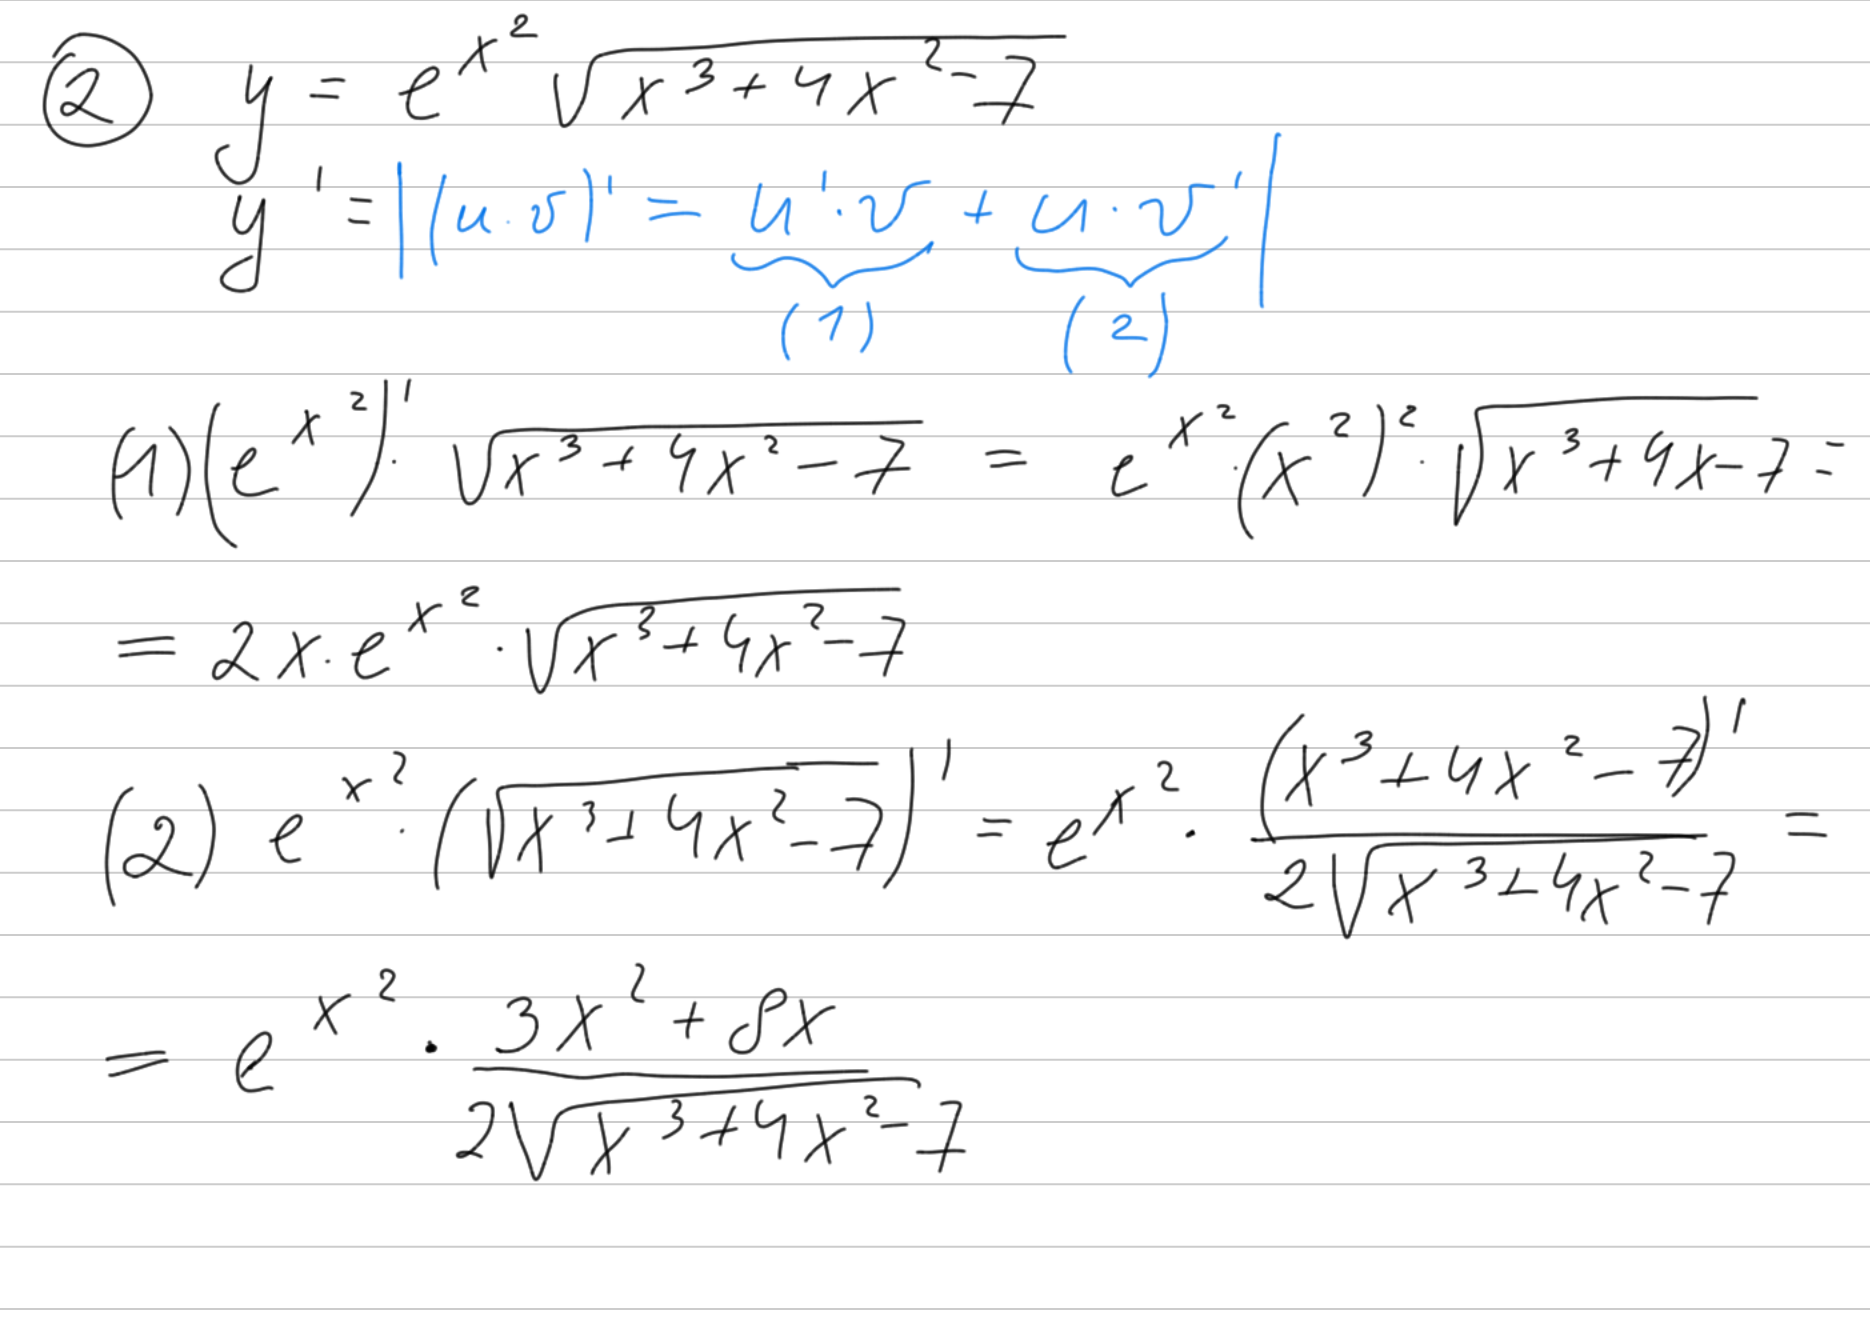 ② y = e^{x^2} √(x^3 + 4x^2 - 7)
y' = |(u · v)' = u' · v + u · v'|
(1) (2)
(1) (e^{x^2})' · √(x^3 + 4x^2 - 7) = e^{x^2} · (x^2)^2 · √(x^3 + 4x - 7) =
= 2x · e^{x^2} · √(x^3 + 4x^2 - 7)
(2) e^{x^2} · (√(x^3 + 4x^2 - 7))' = e^{x^2} · (x^3 + 4x^2 - 7)' / (2√(x^3 + 4x^2 - 7)) =
= e^{x^2} · (3x^2 + 8x) / (2√(x^3 + 4x^2 - 7))